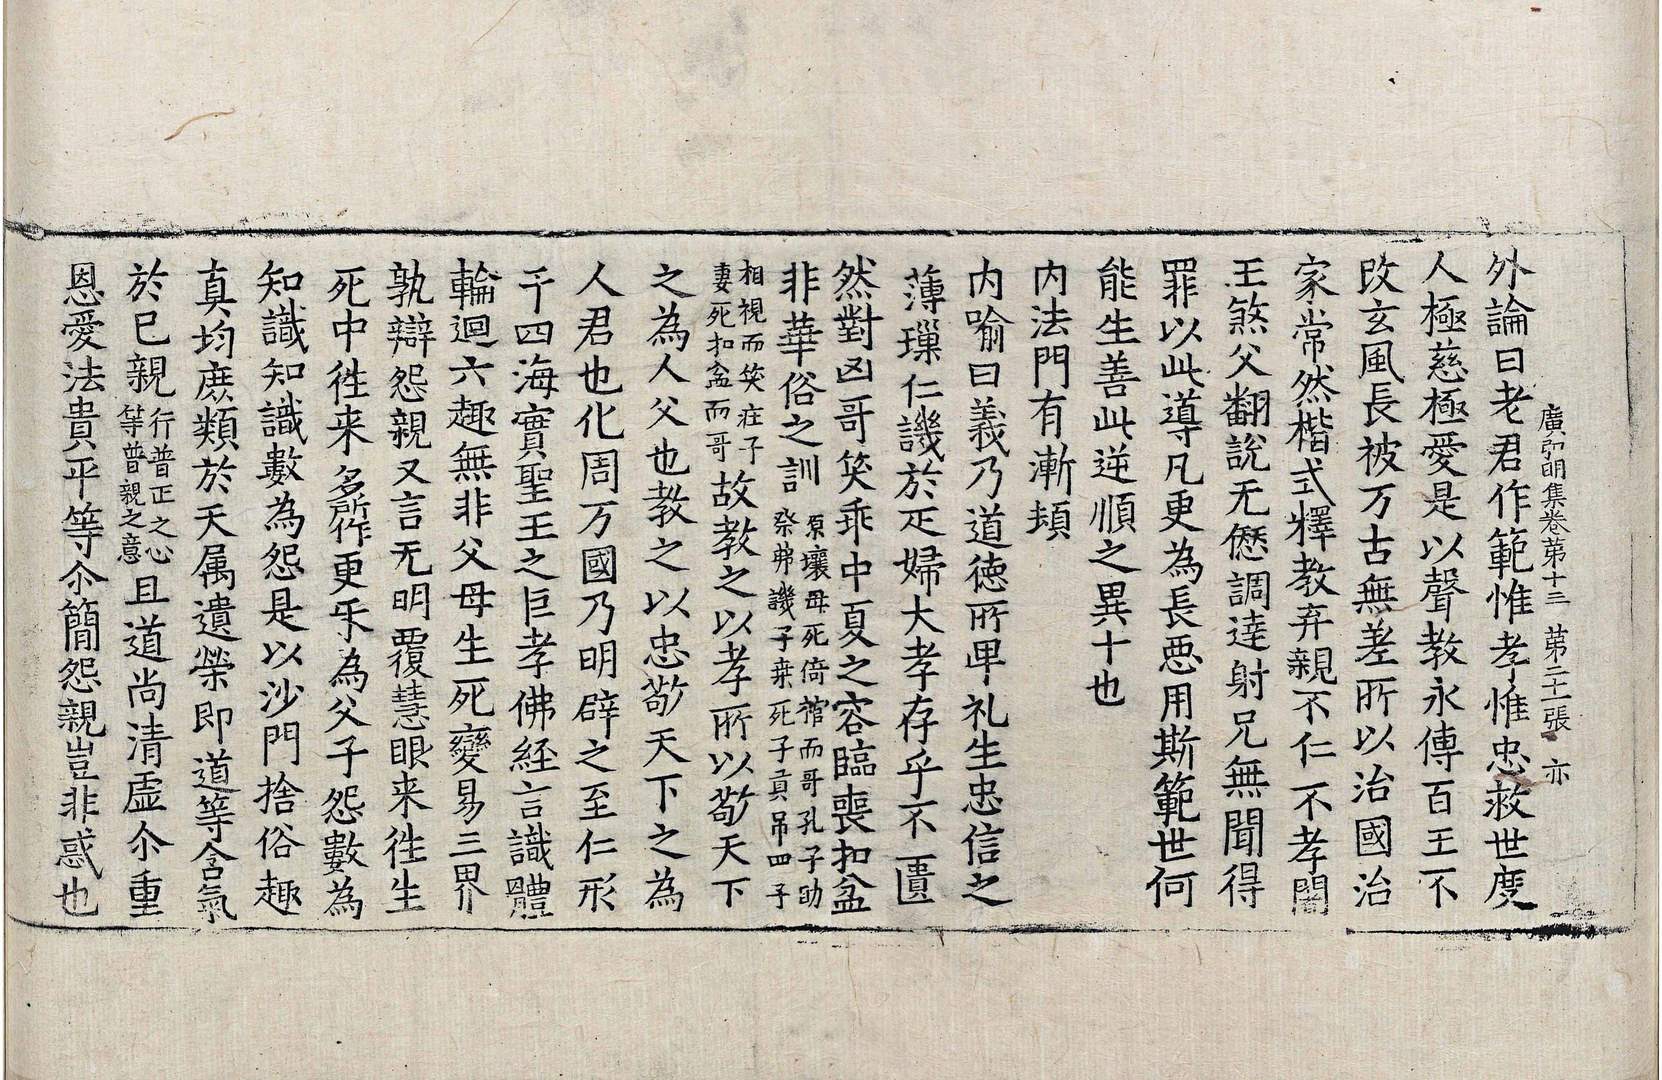 廣弘明集卷第十三　第二十一張　亦
外論曰老君作範惟孝惟忠救世度
人極慈極愛是以聲教永傳百王不
改玄風長被万古無差所以治國治
家常然楷式釋教弃親不仁不孝闍
王煞父翻說无愆調達射兄無聞得
罪以此導凡更為長惡用斯範世何
能生善此逆順之異十也
内法門有漸頓
内喻曰義乃道德所卑礼生忠信之
薄璅仁譏於疋婦大孝存乎不匱
然對凶哥笑乖中夏之容臨喪扣盆
非華俗之訓
原壤母死倚棺而哥孔子助
祭弗譏子桒死子貢吊四子
相視而笑庄子
妻死扣盆而哥
故教之以孝所以敬天下
之為人父也教之以忠敬天下之為
人君也化周万國乃明辟之至仁形
于四海實聖王之巨孝佛経言識體
輪迴六趣無非父母生死變易三界
孰辯怨親又言无明覆慧眼来徃生
死中徃来多所作更㸦為父子怨數為
知識知識數為怨是以沙門捨俗趣
真均庶類於天属遺榮即道等含氣
於已親
行普正之心
等普親之意
且道尚清虛尒重
恩愛法貴平等尒簡怨親豈非惑也